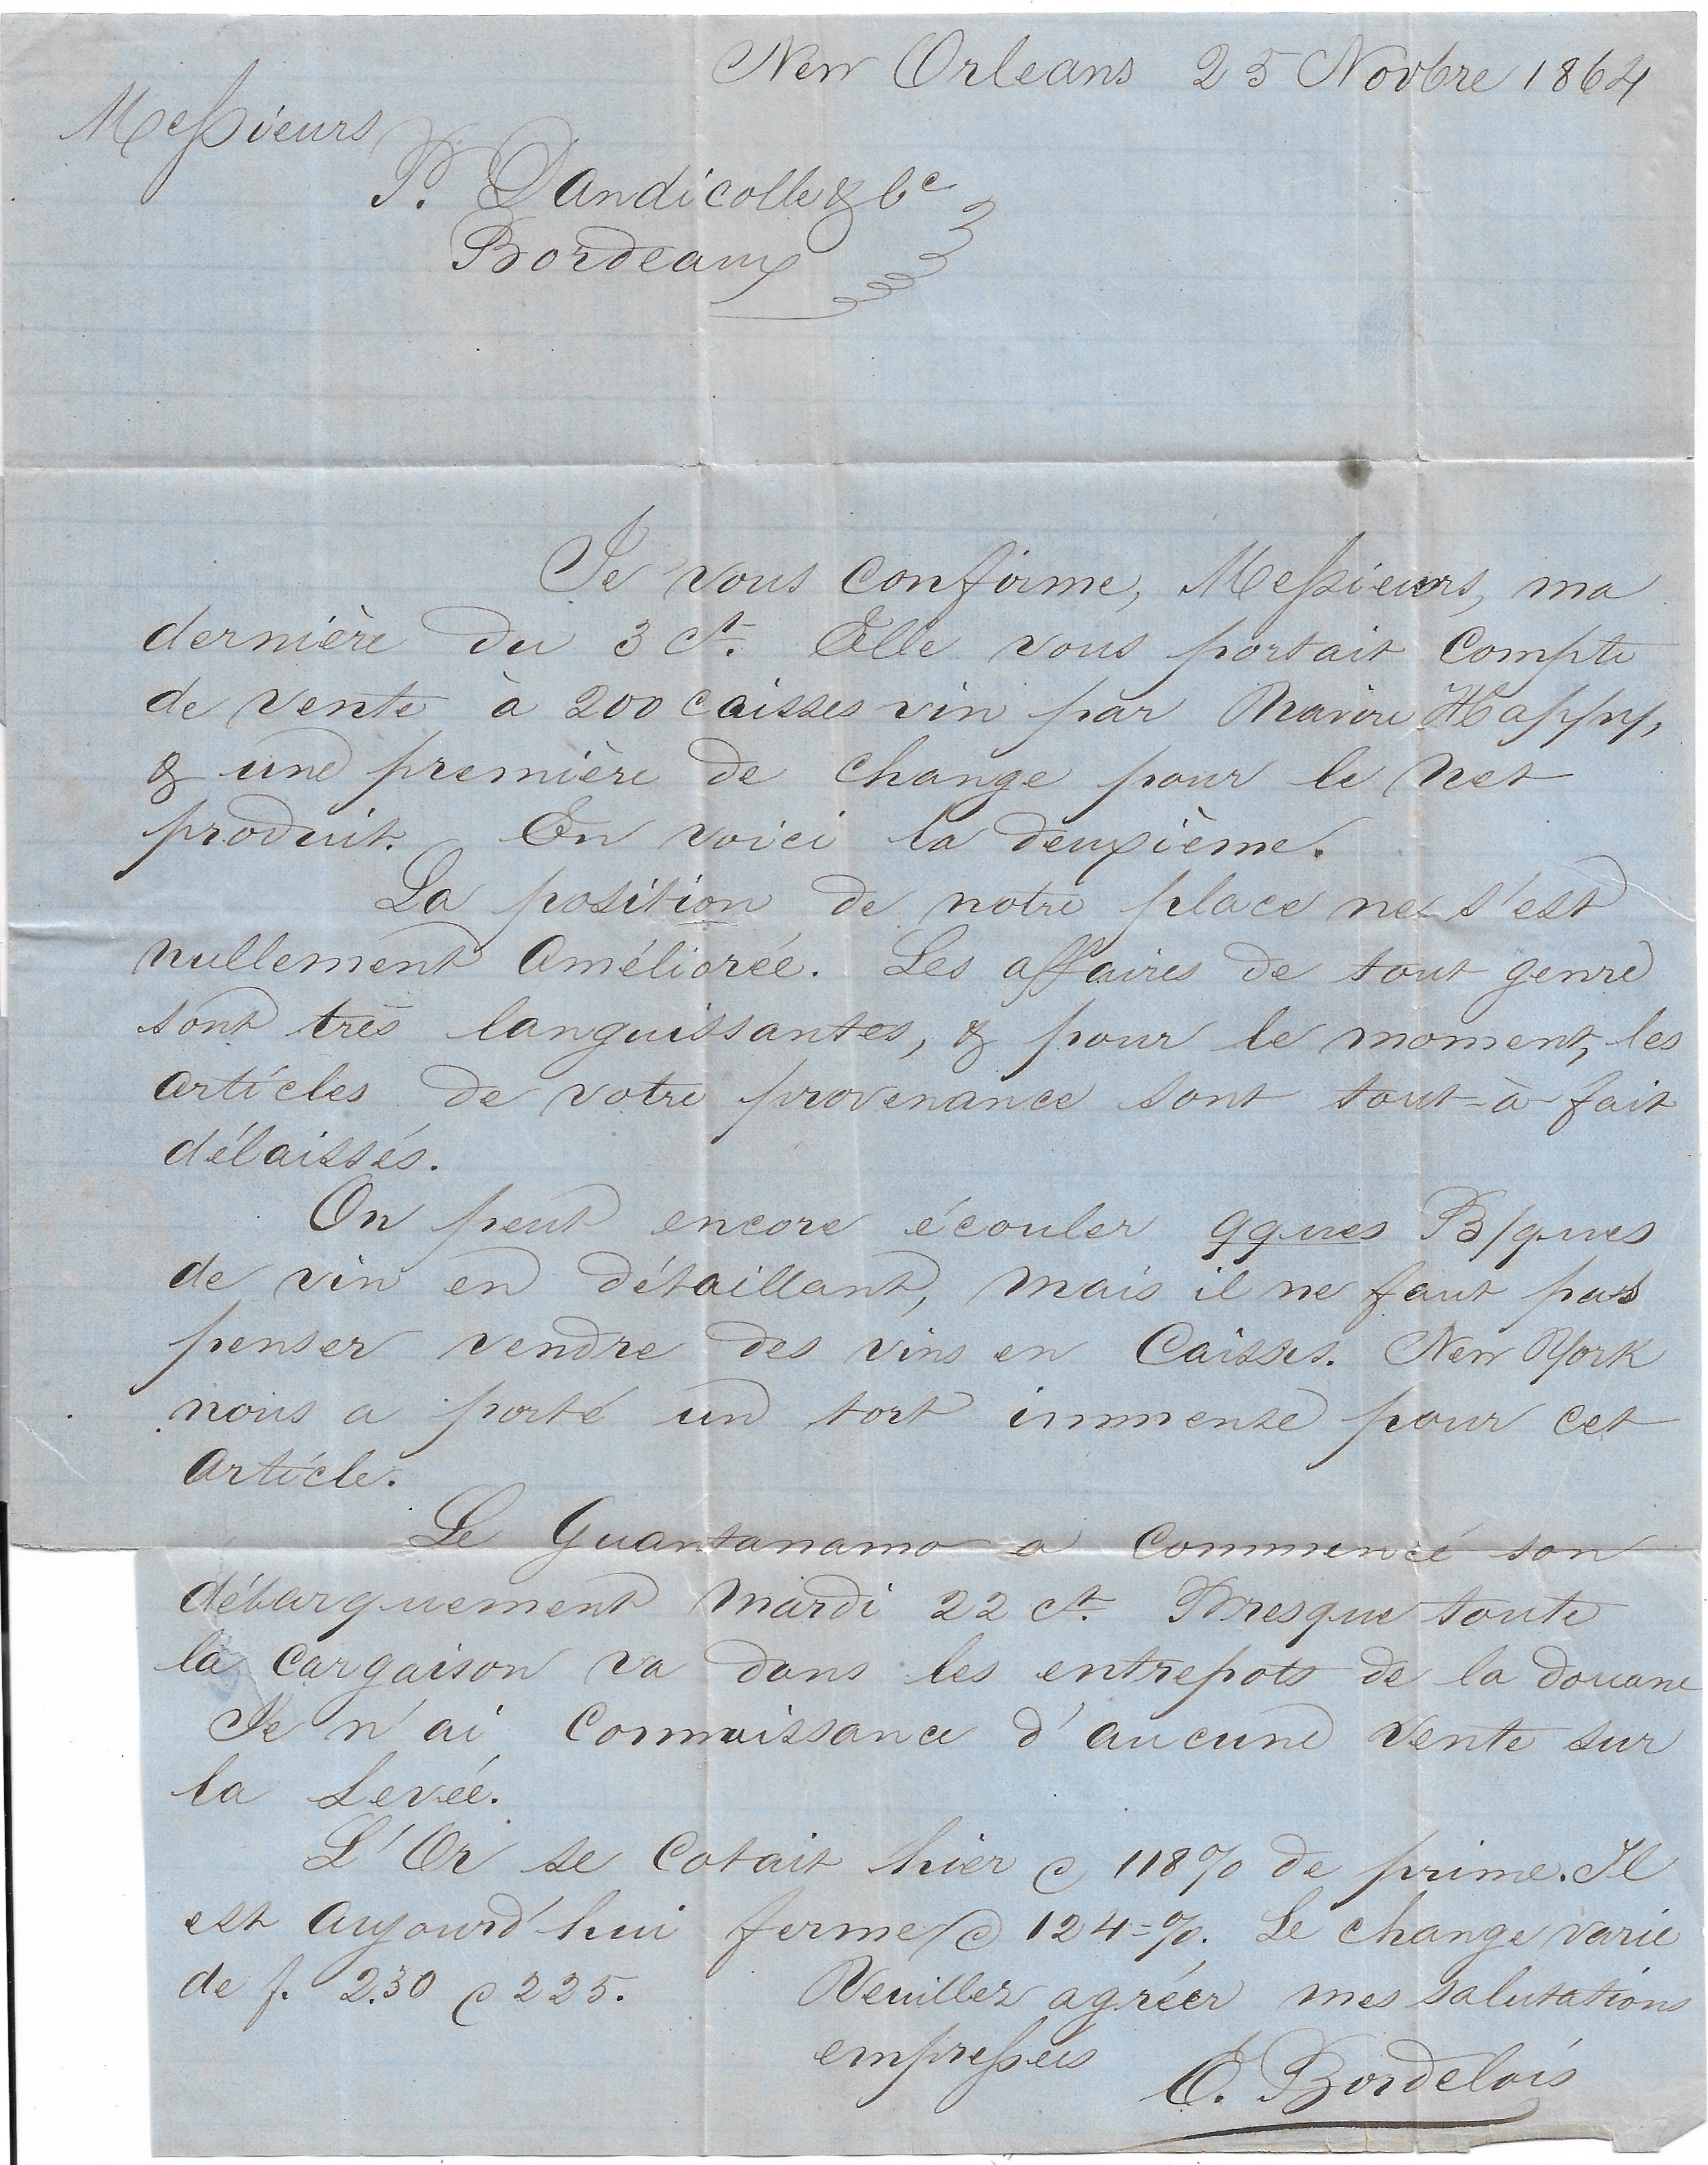 New Orleans 25 Novbre 1864
Messieurs
P. Dandicolle & Ce
Bordeaux
Je vous confirme, Messieurs, ma
dernière du 3 ct. Elle vous portait Compte
de vente à 200 caisses vin par Navire Happy,
& une première de change pour le net
produit. En voici la deuxième.
La position de notre place ne s'est
nullement améliorée. Les affaires de tout genre
sont très languissantes, & pour le moment, les
articles de votre provenance sont tout-à-fait
délaissés.
On peut encore écouler qques B/ques
de vin en détaillant, mais il ne faut pas
penser vendre des vins en Caisses. New York
nous a porté un tort immense pour cet
article.
Le Guantanamo a commencé son
débarquement Mardi 22 ct. Presque toute
la cargaison va dans les entrepots de la douane
Je n'ai Connaissance d'aucune vente sur
la Levée.
L'Or se Cotait hier @ 118% de prime. Il
est aujourd'hui ferme @ 124-%. Le change varie
de f. 2.30 @ 225. Veuillez agréer mes salutations
empressées
E. Bordelois